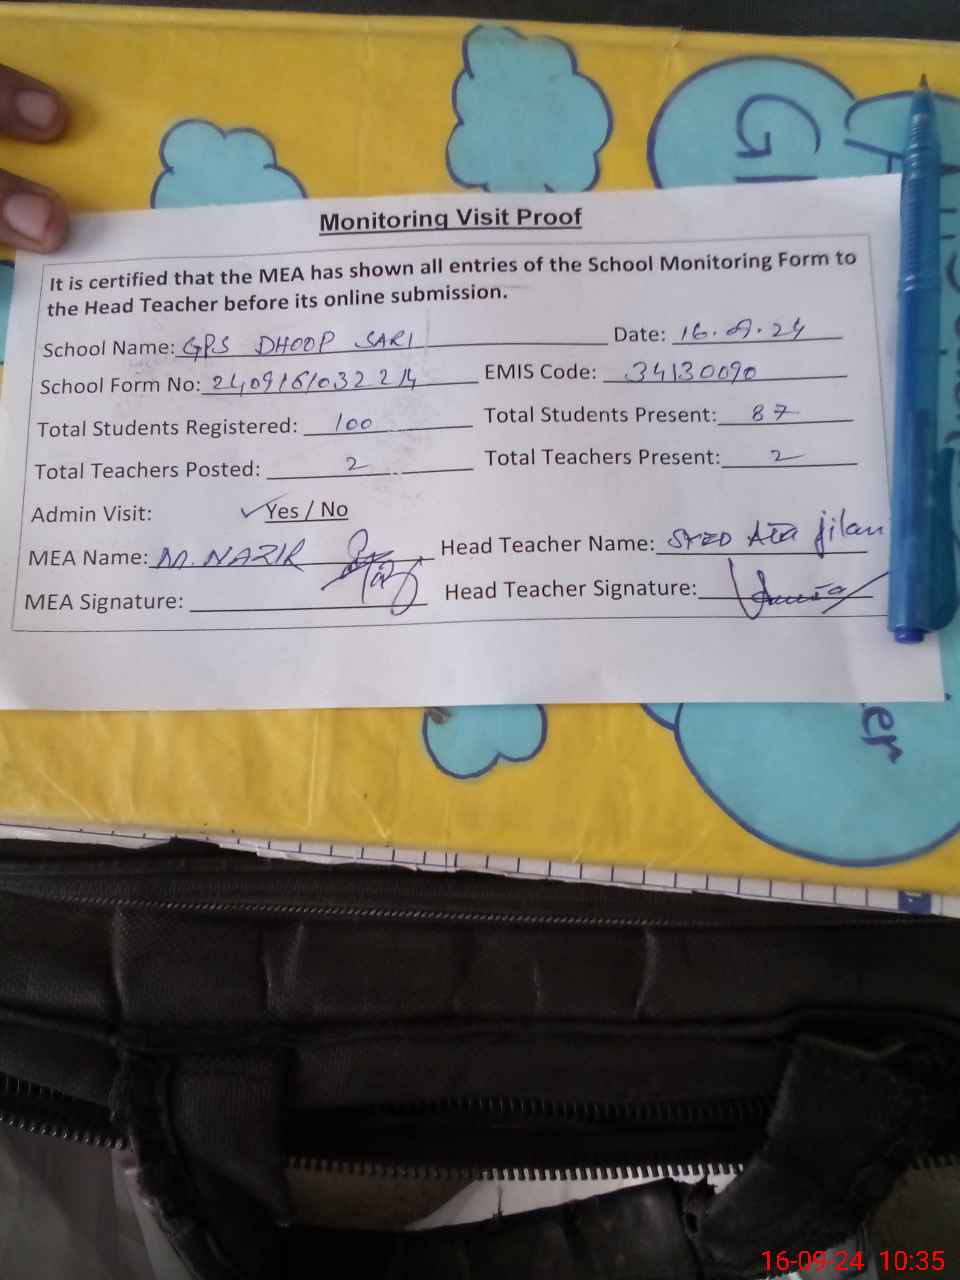 Monitoring Visit Proof
It is certified that the MEA has shown all entries of the School Monitoring Form to
the Head Teacher before its online submission.
School Name: GPS DHOOP SARI Date: 16.09.24
School Form No: 2409161032214 EMIS Code: 34130090
Total Students Registered: 100 Total Students Present: 87
Total Teachers Posted: 2 Total Teachers Present: 2
Admin Visit: ✓Yes / No
MEA Name: M. NAZIR Head Teacher Name: SYED Ata jilani
MEA Signature: Head Teacher Signature:
er
16-09-24 10:35